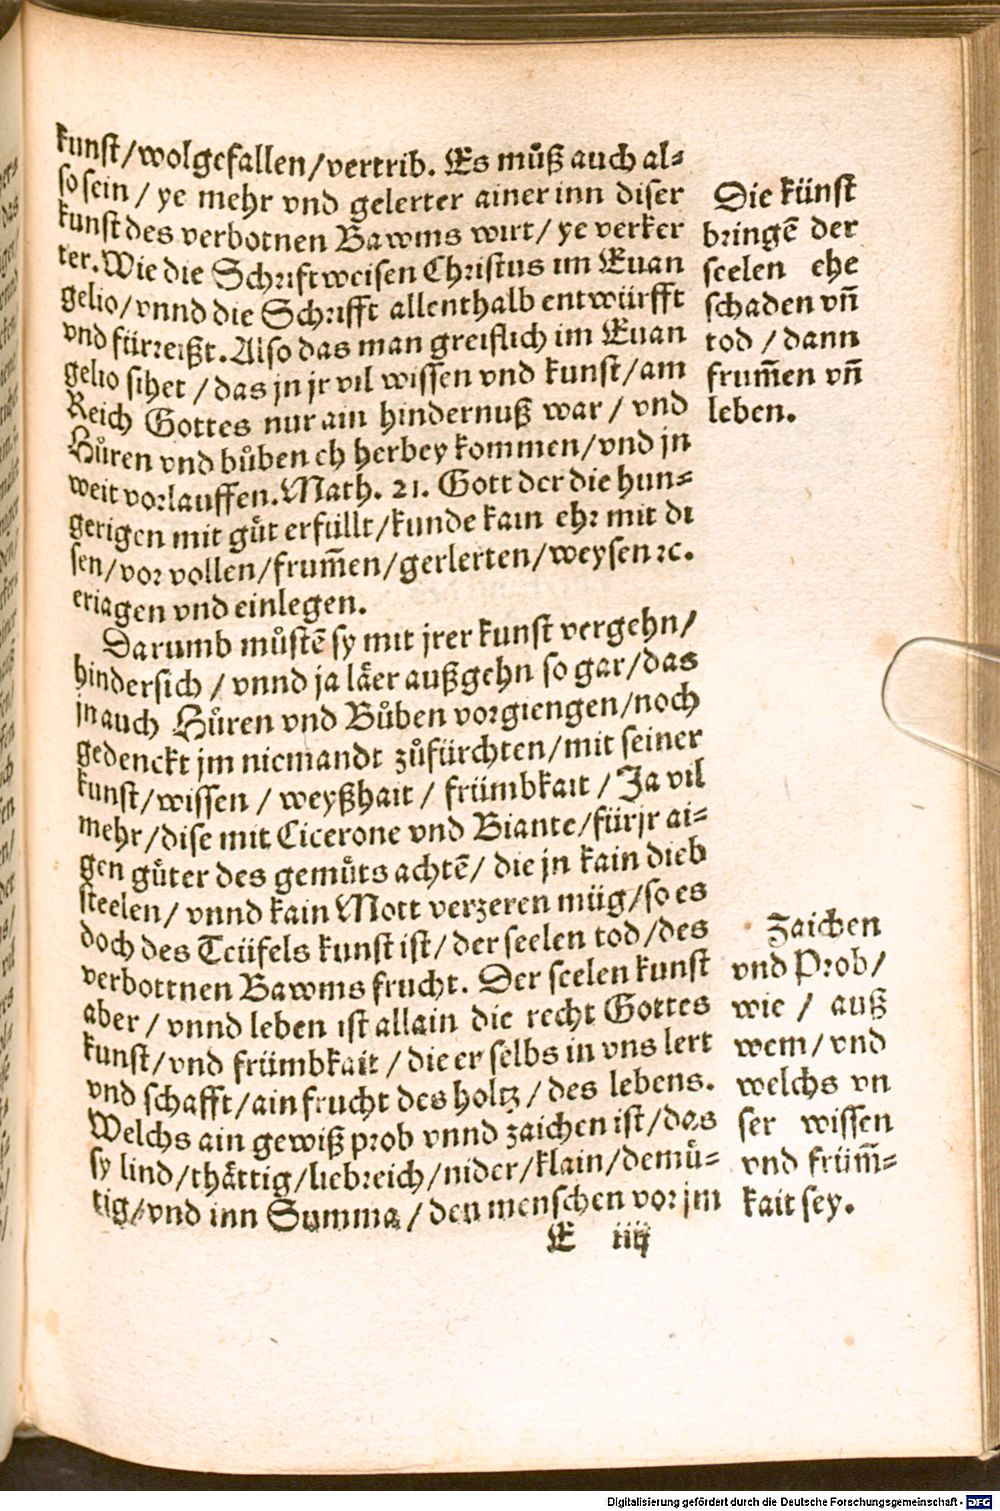 kunst/wolgefallen/vertrib. Es můß auch al⸗
so sein / ye mehr vnd gelerter ainer inn diser
kunst des verbotnen Bawms wirt/ ye verker
ter. Wie die Schrifftweisen Christus im Euan
gelio/vnnd die Schrifft allenthalb entwürfft
vnd fürreißt. Also das man greiflich im Euan
gelio sihet / das jn jr vil wissen vnd kunst/am
Reich Gottes nur ain hindernuß war / vnd
Hůren vnd bůben eh herbey kommen/vnd jn
weit vorlauffen. Math. 21. Gott der die hun⸗
gerigen mit gůt erfüllt/kunde kain ehr mit di
sen/vor vollen/frum̃en/gerlerten/weysen ꝛc.
eriagen vnd einlegen.
Darumb můstẽ sy mit jrer kunst vergehn/
hindersich / vnnd ja läer außgehn so gar/das
jn auch Hůren vnd Bůben vorgiengen/noch
gedenckt jm niemandt zůfürchten/mit seiner
kunst/wissen / weyßhait / frümbkait / Ja vil
mehr/dise mit Cicerone vnd Biante/für jr ai⸗
gen güter des gemůts achtẽ/ die jn kain dieb
steelen/ vnnd kain Mott verzeren müg/so es
doch des Teüfels kunst ist/ der seelen tod/des
verbottnen Bawms frucht. Der seelen kunst
aber / vnnd leben ist allain die recht Gottes
kunst/vnd frümbkait / die er selbs in vns lert
vnd schafft/ain frucht des holtz / des lebens.
Welchs ain gewiß prob vnnd zaichen ist/das
sy lind/thättig/liebreich/nider/klain/demů⸗
tig/vnd inn Summa / den menschen vor jm
E iiij
Die künst
bringẽ der
seelen ehe
schaden vñ
tod / dann
frum̃en vñ
leben.
Zaichen
vnd Prob/
wie / auß
wem/ vnd
welchs vn
ser wissen
vnd früm̃⸗
kait sey.
Digitalisierung gefördert durch die Deutsche Forschungsgemeinschaft - DFG